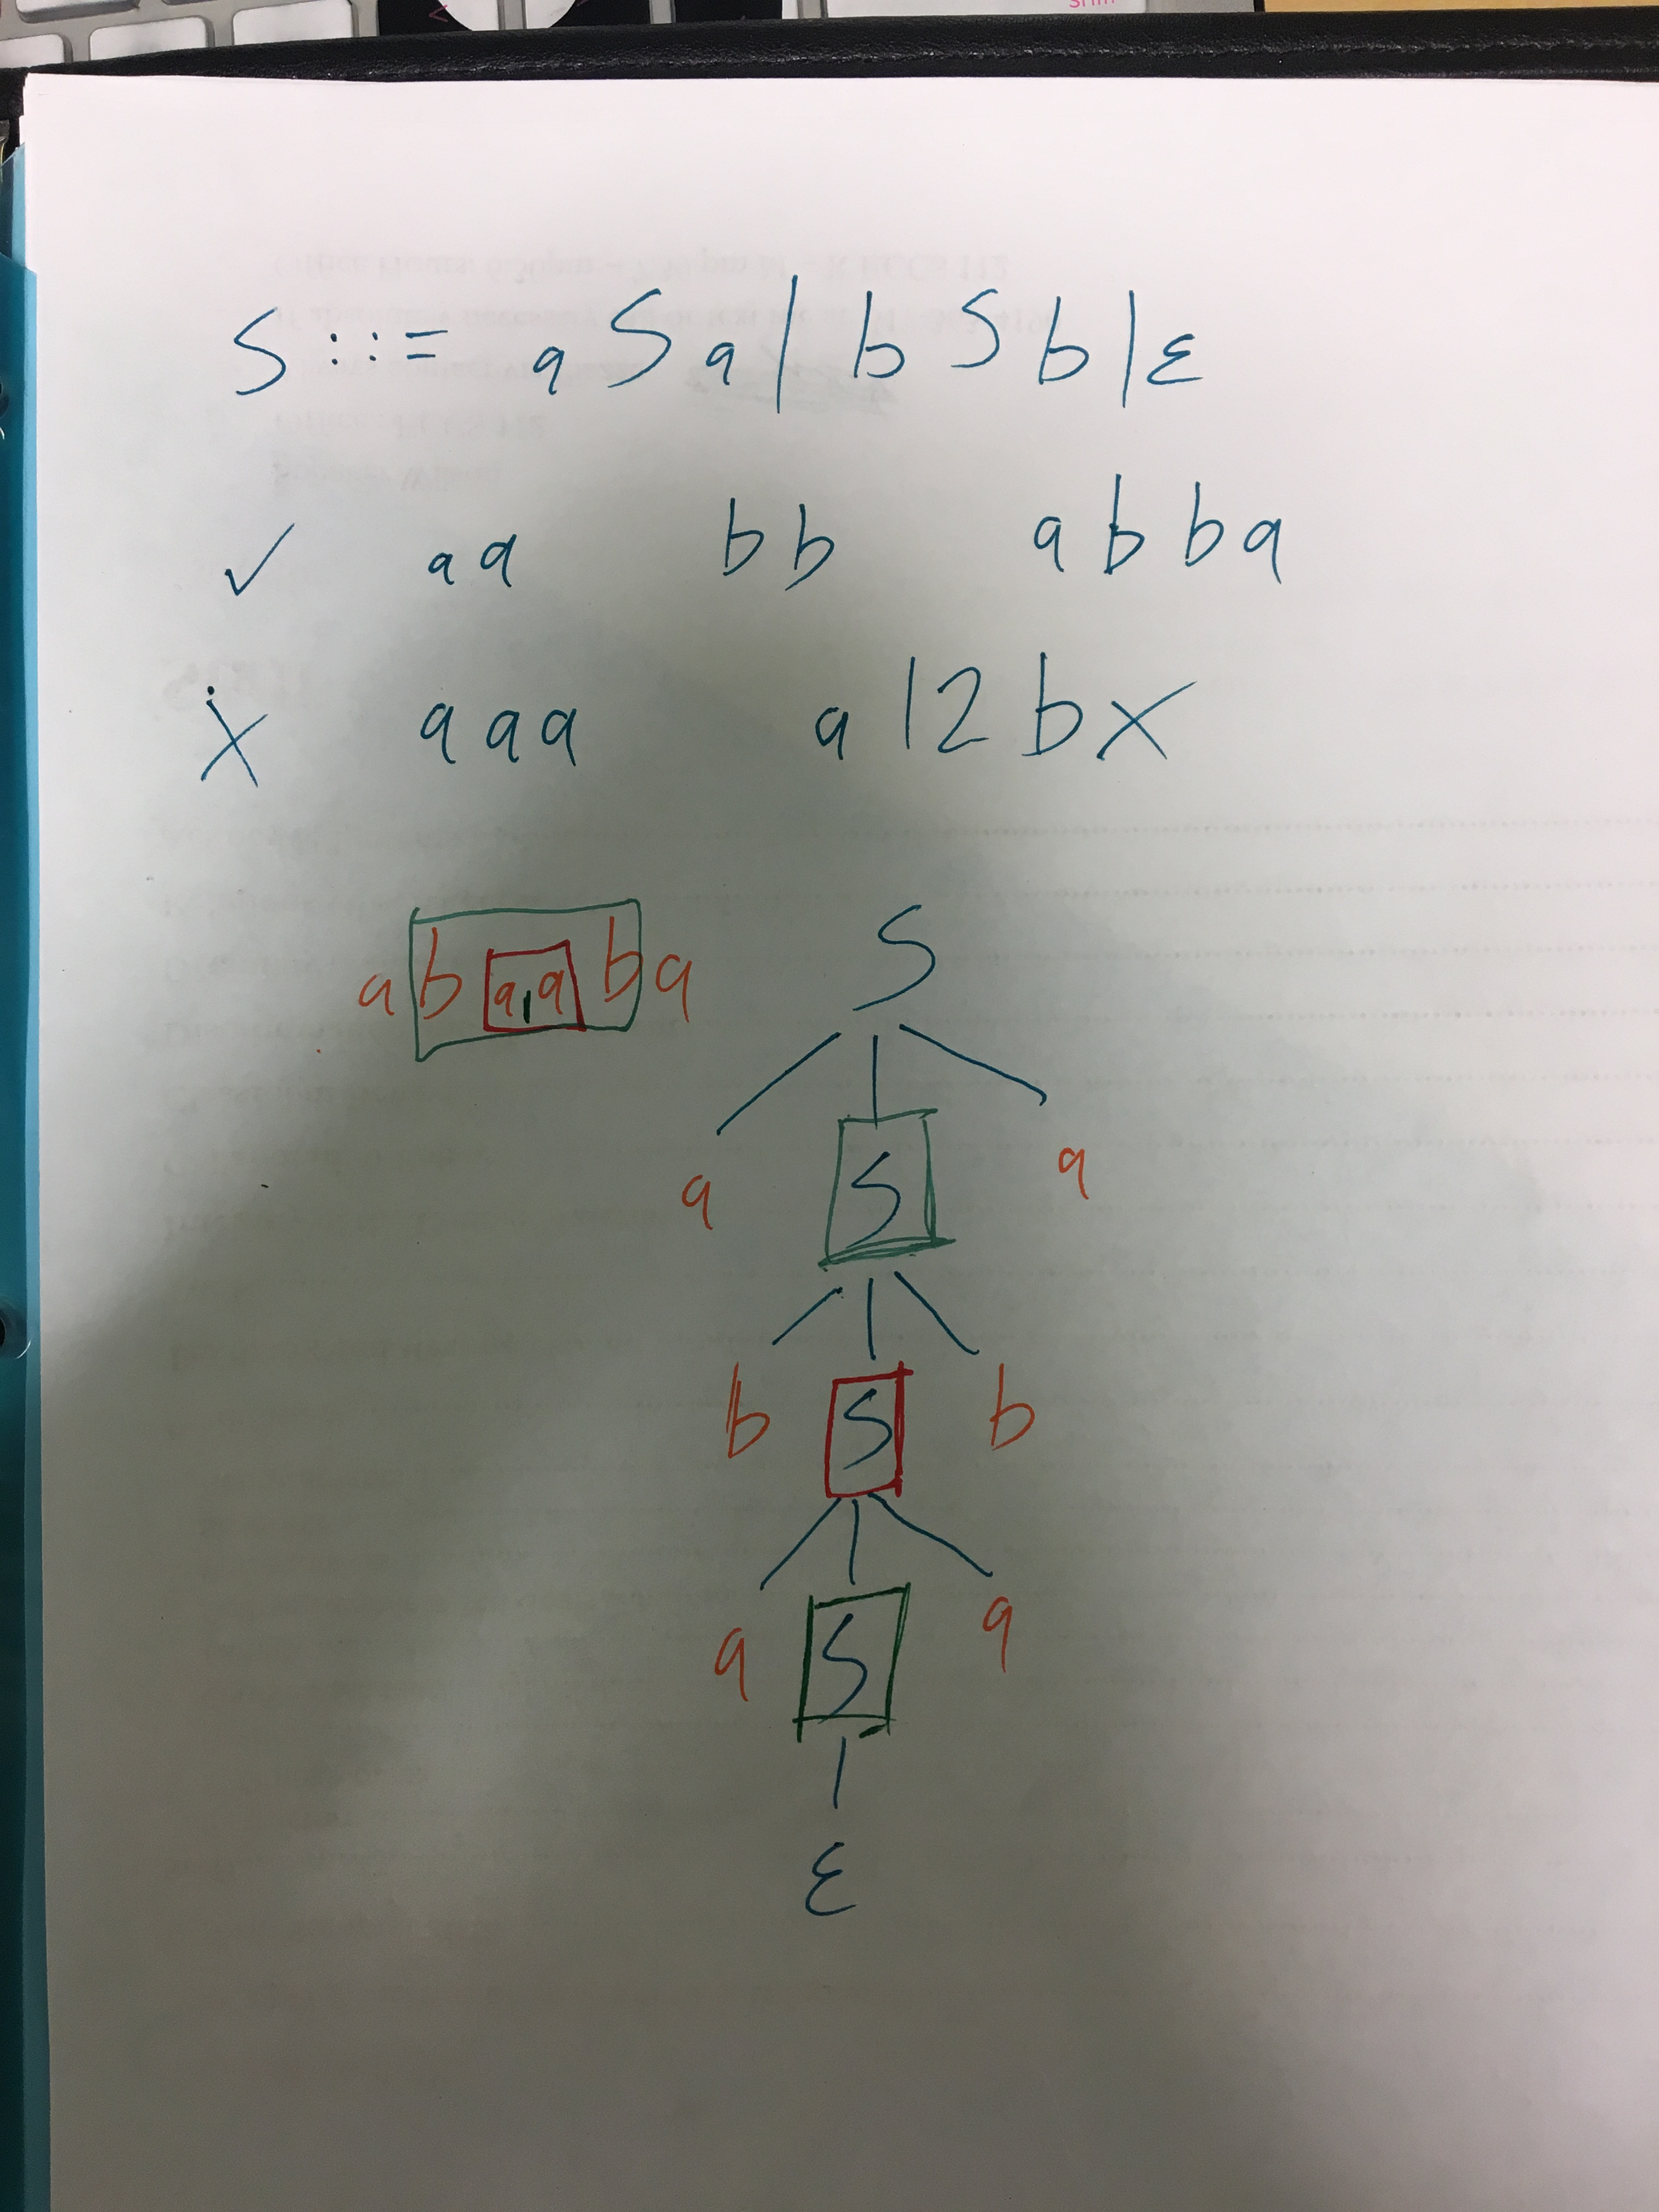 S ::= a S a | b S b | ε
✓ aa bb abba
X aaa a12bx
abaaba
S
a S a
b S b
a S a
ε